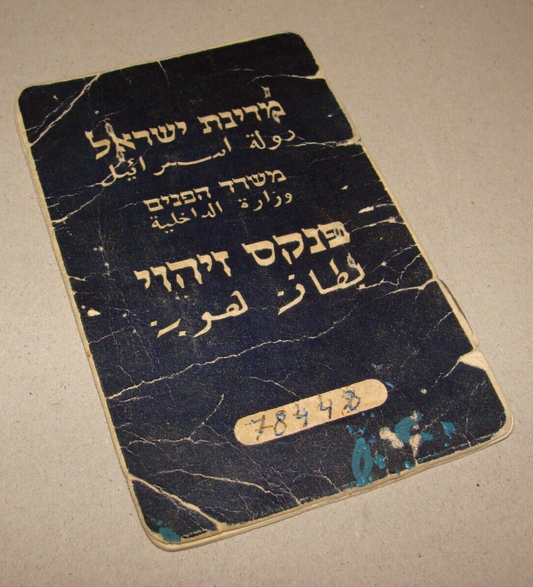 מדינת ישראל
دولة اسرائيل
משרד הפנים
وزارة الداخلية
פנקס זיהוי
بطاقة هوية
78448